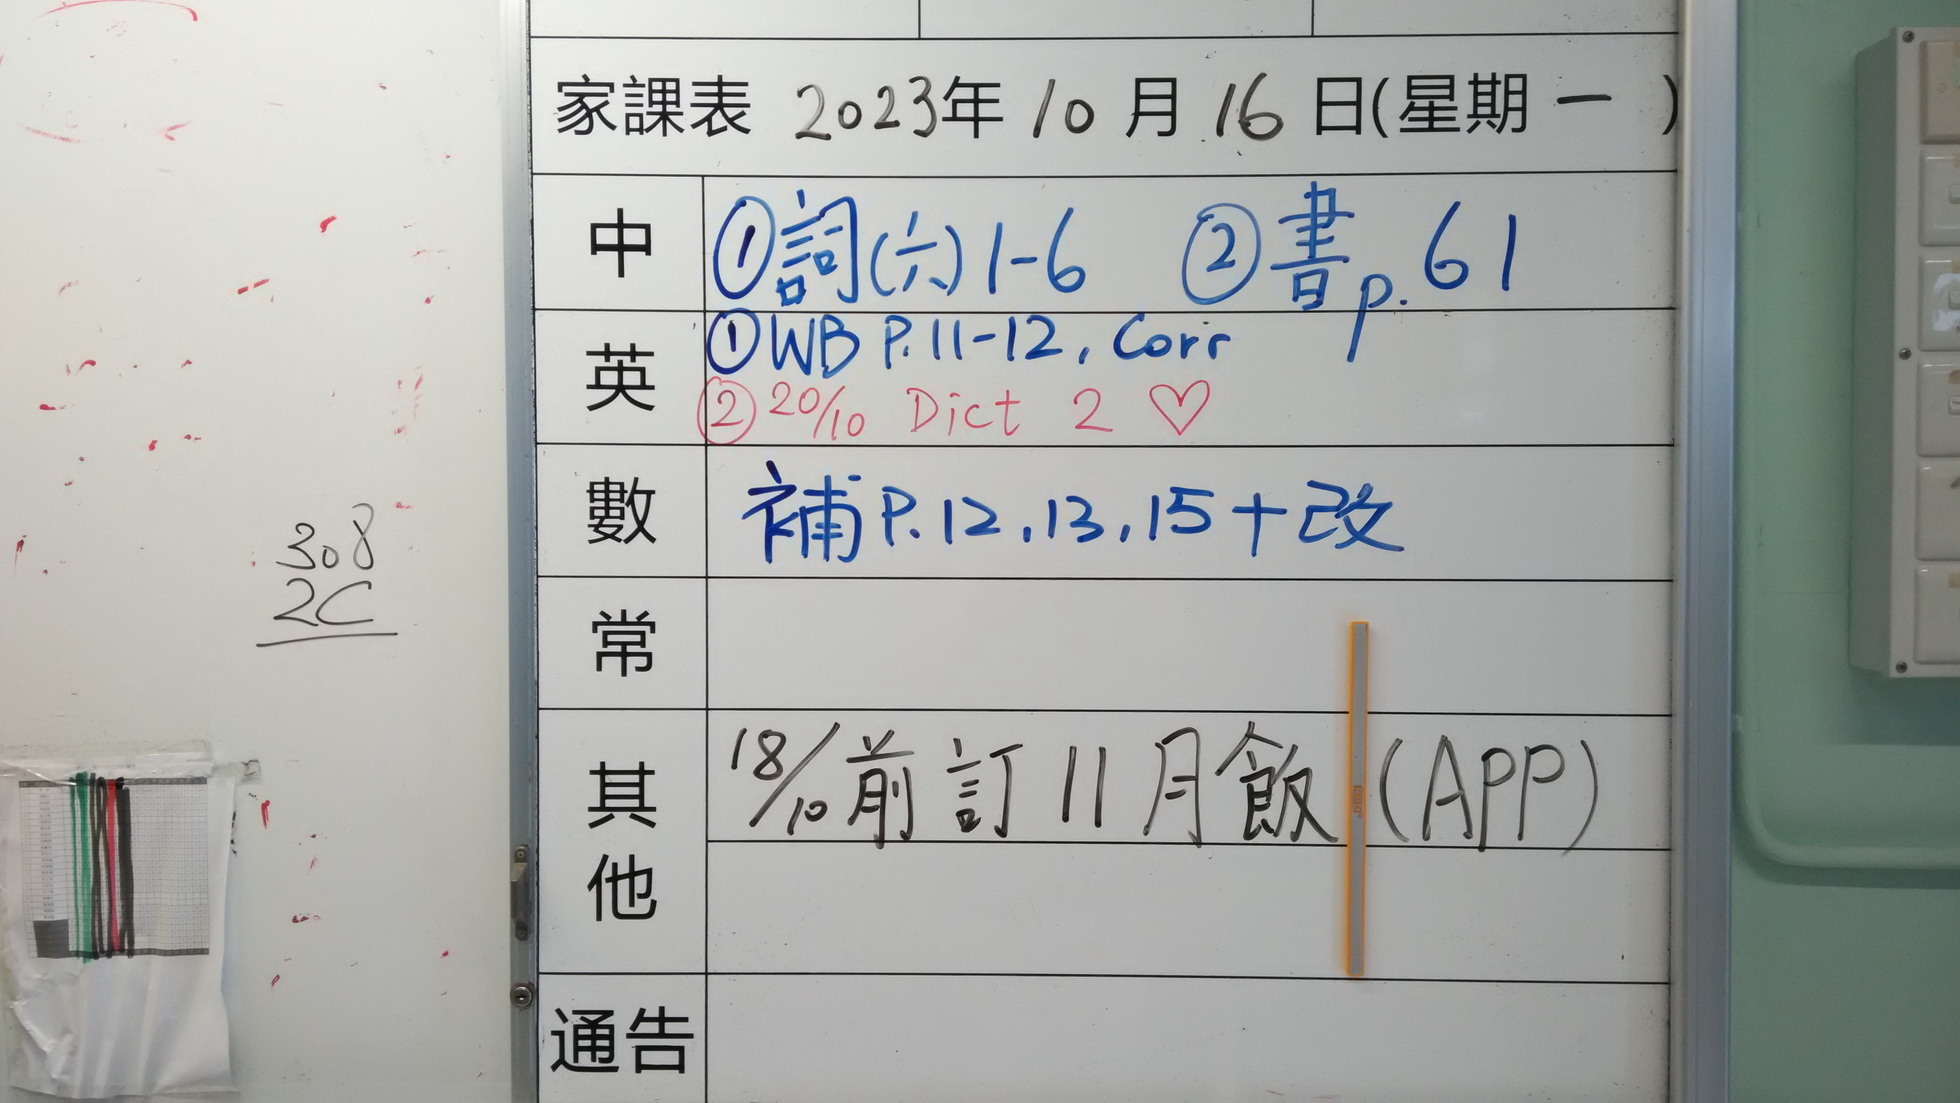 家課表 2023年 10 月 16 日(星期 一 )
中 ①詞(六) 1-6 ②書 p. 61
英 ①WB P.11-12, Corr
②20/10 Dict 2 ♡
數 補 P.12, 13, 15 + 改
308
2C
常
其他 18/10 前訂 11 月飯 (APP)
通告